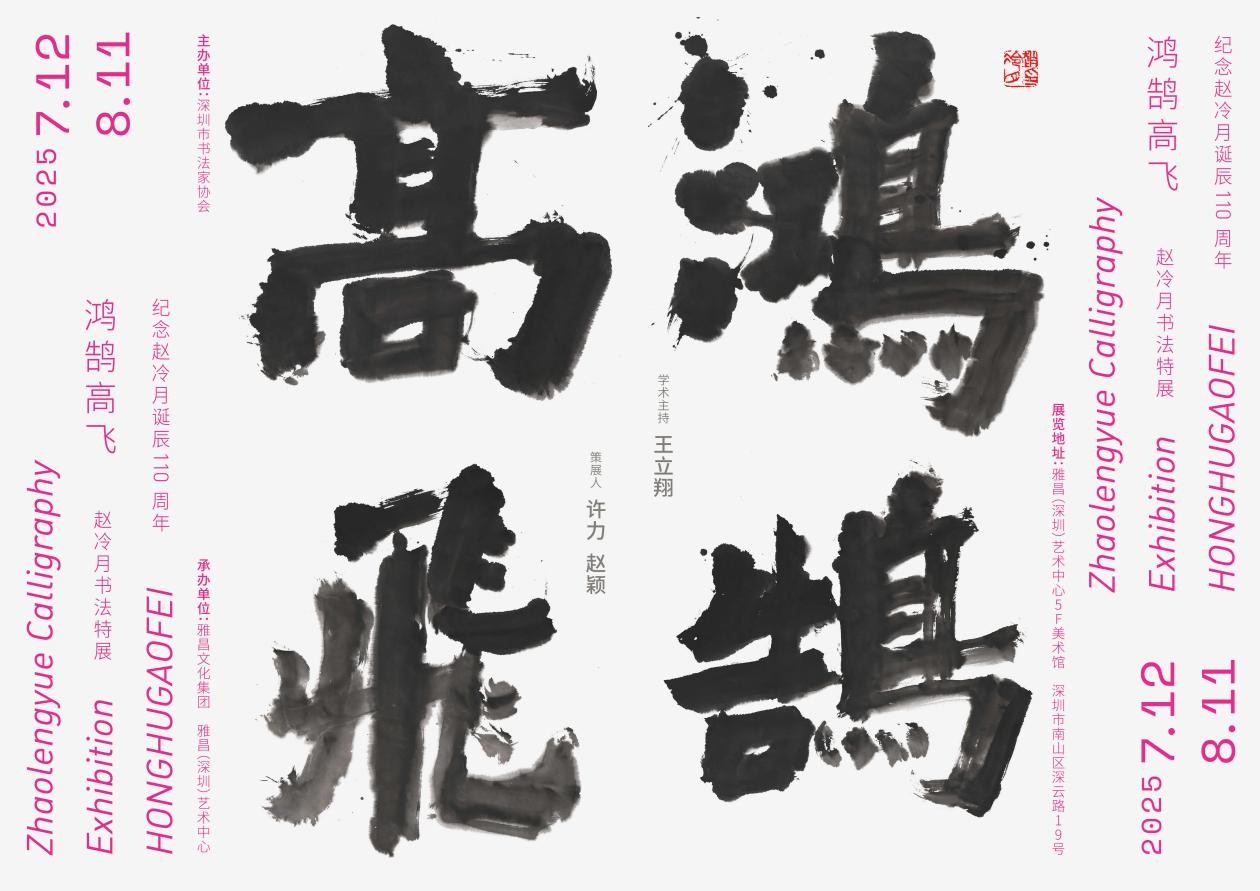 纪念赵冷月诞辰110周年
HONGHUGAOFEI
8.11
鸿鹄高飞
赵冷月书法特展
Exhibition
2025 7.12
Zhaolengyue Calligraphy
展览地址:雅昌(深圳)艺术中心5F美术馆 深圳市南山区深云路19号
鴻鵠
学术主持 王立翔
策展人 许力 赵颖
高飛
主办单位:深圳市书法家协会
承办单位:雅昌文化集团 雅昌(深圳)艺术中心
纪念赵冷月诞辰110周年
HONGHUGAOFEI
8.11
鸿鹄高飞
赵冷月书法特展
Exhibition
2025 7.12
Zhaolengyue Calligraphy